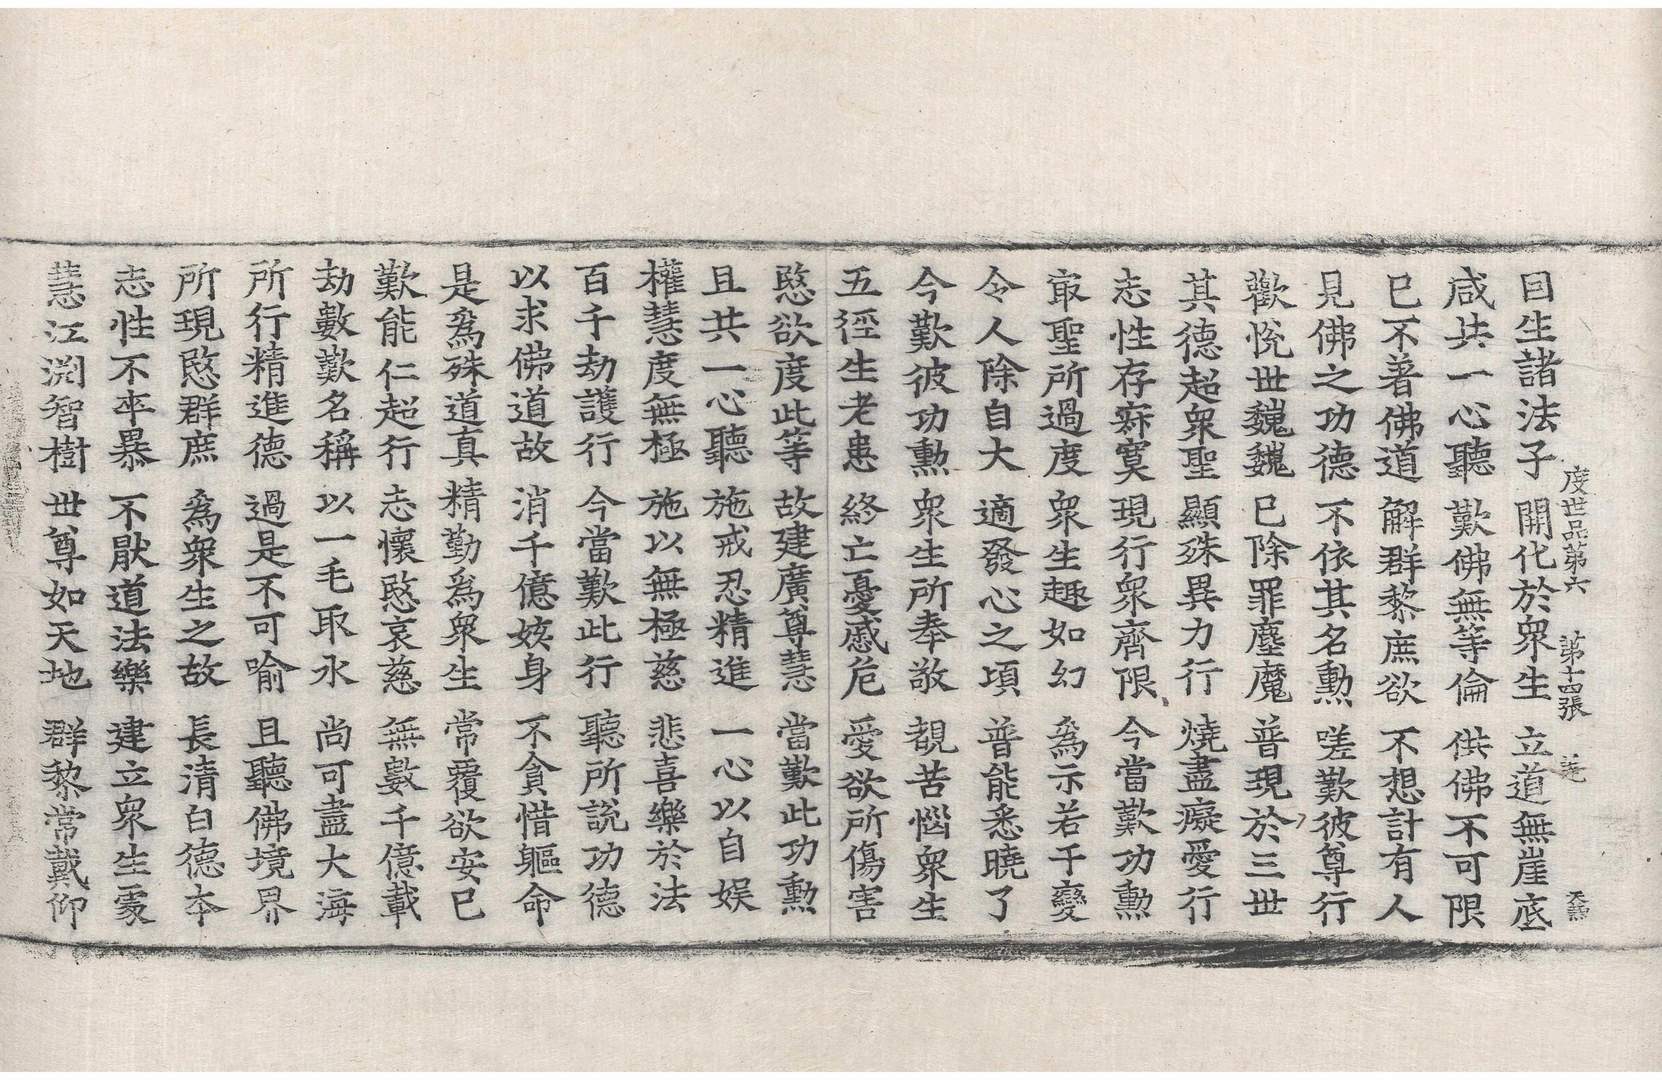 度世品第六　第十四張　

因生諸法子　開化於衆生　立道無崖底
咸共一心聽　歎佛無等倫　供佛不可限
已不著佛道　解群黎庶欲　不想計有人
見佛之功德　不依其名勳　嗟歎彼尊行
歡悅世巍巍　已除罪塵魔　普現於三世
其德超衆聖　顯殊異力行　燒盡癡愛行
志性存寂寞　現行衆齊限　今當歎功勳
最聖所過度　衆生趣如幻　爲示若干變
令人除自大　適發心之頃　普能悉曉了
今歎彼功勳　衆生所奉敬　覩苦惱衆生
五徑生老患　終亡憂慼危　愛欲所傷害
愍欲度此等　故建廣尊慧　當歎此功勳
且共一心聽　施戒忍精進　一心以自娛
權慧度無極　施以無極慈　悲喜樂於法
百千劫護行　今當歎此行　聽所說功德
以求佛道故　消千億姟身　不貪惜軀命
是爲殊道真　精勤爲衆生　常覆欲安已
歎能仁超行　志懷愍哀慈　無數千億載
劫數歎名稱　以一毛取水　尚可盡大海
所行精進德　過是不可喻　且聽佛境界
所現愍群庶　爲衆生之故　長清白德本
志性不卒暴　不厭道法樂　建立衆生處
慧江淵智樹　世尊如天地　群黎常戴仰